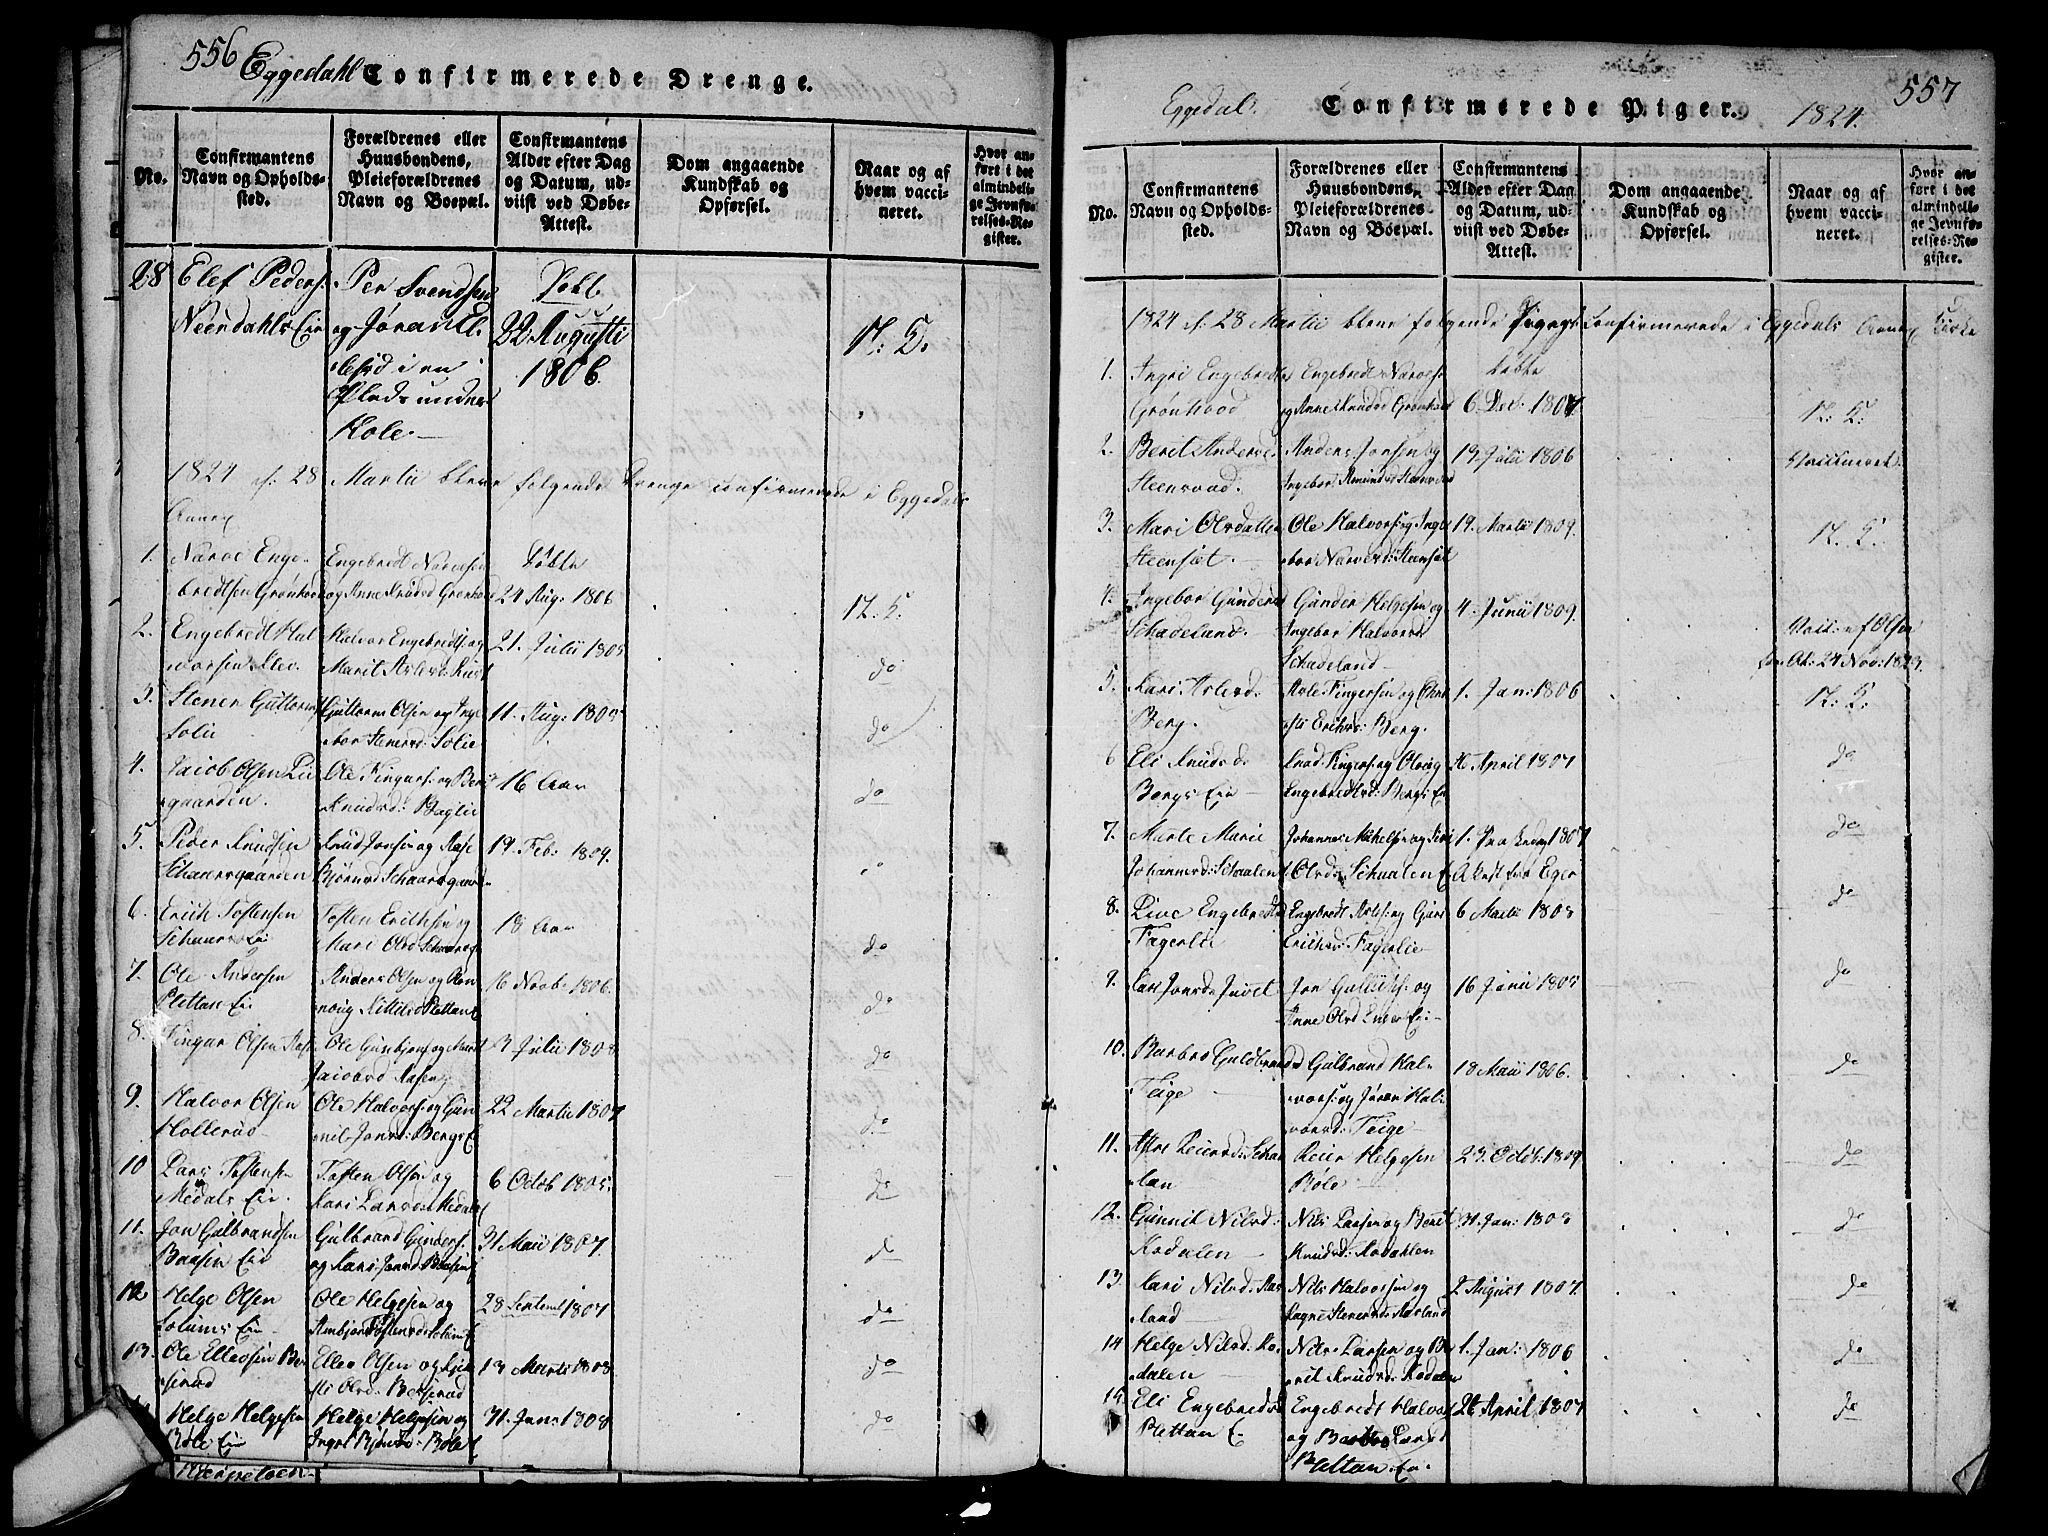 556 Eggedahl Confirmerede Drenge.
No.
Confirmantens
Navn og Opholds-
sted.
Forældrenes eller
Huusbondens,
Pleieforældrenes
Navn og Boepæl.
Confirmantens
Alder efter Dag
og Datum, ud-
viist ved Døbe-
Attest.
Dom angaaende
Kundskab og
Opførsel.
Naar og af
hvem vacci-
neret.
Hvor an-
ført i det
almindeli-
ge Jevnfø-
relses-Re-
gister.
28 Elef Peders:
Neendahls Eie
Per Svendsen
og Jøran El:
i en
Plads under
Kole.
Døbt
22 Augusti
1806.
17: 5:
1824 d: 28 Martii bleve følgende Drenge confirmerede i Eggedals
Annex
1. Narve Enge-
bredtsen Grønhood
Engebredt Narvesen
og Anne Knudsd Grønhood
Døbte
24 Aug: 1806
17. 5.
2. Engebredt Hal
vorsen
Halvor Engebredts: og
Marit Aslevsd:
21. Julii 1805
do
3. Stener Guttorms
Solie
Guttorm Olsen og Inge
bor Stenersd: Solie
11. Aug: 1805
do
4. Jacob Olsen
gaarden.
Ole Fingars: og Beri
Knudsd: Baglie
16 Aar
do
5. Peder Knudsen
Schaarsgaarden
Knud Jonsen og Aase
Bjørnsd Schaarsgaard
19. Feb: 1809.
6. Erich Tostensen
Schaars Ei
Tosten Erichsen og
Mari Olsd Schaars
18 Aar
do
7. Ole Andersen
Plettan Ei
Anders Olsen og Røn
noug Kittilsd Plettan E
16 Novb: 1806.
do
8. Fingar Olsen Aasen
Ole Gunbjørns: og Marit
Jacobsd Aasen
3 Julii 1808
do
9. Halvor Olsen
Hollerud
Ole Halvors: og Gun
nil Jonsd: Bergs E
22 Martii 1807
do
10 Lars Tostens:
Medals Eie.
Tosten Olsen og
Kari Larsd: Medals E
6 Octob 1805.
do
11. Jon Gulbrandsen
Baasen Eie
Gulbrand Gunders:
og Kari Jonsd Baasen E
31 Maii 1807
d
12 Helge Olsen
Solums Eie
Ole Helgesen og
Anbjør Tostensd: Solum E
28 Septemb 1807
do
13. Ole Ellevsen Ber
serud
Ellev Olsen og Kjer
sti Olsd: Berserud
13 Martii 1808
do
Helge Helgesen
Røle Eie
Helge Helgesen og
Ingri Bjørnsd: Røle E
31 Jan: 1808
do
Eggedal. Confirmerede Piger. 1824. 557
No.
Confirmantens
Navn og Opholds-
sted.
Forældrenes eller
Huusbondens,
Pleieforældrenes
Navn og Boepæl.
Confirmantens
Alder efter Dag
og Datum, ud-
viist ved Døbe-
Attest.
Dom angaaende
Kundskab og
Opførsel.
Naar og af
hvem vacci-
neret.
Hvor an-
ført i det
almindeli-
ge Jevnfø-
relses-Re-
gister.
1824 d: 28 Martii bleve følgende Piger Confirmerede i Eggedals Annex Kirke
1. Ingri Engebredts
Grønhood
Engebredt Narves:
og Anne Knudsd Grønhood
Døbte
6 Dec: 1807
17: 5:
2. Berit Andersd:
Steensrud.
Anders Jonsen og
Ingebor Amundsd Steensrud
19 Julii 1806
Vaccineret
3. Mari Olsdatter
Steensæt.
Ole Halvors: og Inge
bor Narvesd: Steensæt
19. Martii 1809.
17. 5.
4. Ingebor Gundersd
Schadeland.
Gunder Helgesen og
Ingebor Halvorsd
Schadeland
4. Junii 1809.
Vacc: af Olsen
24 Nov: 1823.
5. Kari Aslesd.
Berg.
Asle Fingersen og Chri
sti Erichsd: Berg.
1. Jan: 1806
17: 5:
6 Eli Knudsd
Bergs Eie
Knud Fingers: og Oloug
Engebredtsd: Bergs Eie
26 April 1807
do
7. Marte Marie
Johannesd: Schaalen E
Johannes Michelsen og Siri
Olsd: Schaalen E
1. 1807
Attest fra Eger
do
8. Live Engebredtsd
Fagerlie
Engebredt Asles: og Guri
Erichsd: Fagerlie
6 Martii 1808
do
9. Kari Jonsd: Juvet
Jon Gulliks: og
Anne Olsd Eie
16 Junii 1805
do
10. Barbro Guldbrandsd
Teige
Gulbrand Hal-
vors: og Jøran Hal-
vorsd: Teige
18 Maii 1806.
do
11. Astri Reiersd: Schaa
lan
Reier Helgesen
Røle
23. Octob: 1809
do
12. Gunnil Nilsd:
Kodalen
Nils Larsen og Berit
Knudsd: Kodahlen
31. Jan: 1808
do
13. Kari Nilsd. Aas
land
Nils Halvorsen og
Ragne Stenersd: Aasland
2 August 1807.
do
14 Helge Nilsd. Ko
dalen
Nils Larsen og Be
rit Knudsd: Kodalen
1. Jan: 1806
do
15. Eli Engebredtsd
Plettan E
Engebredt Halvors
og Barbro Larsd
Plettan Eie.
26 April 1807
do